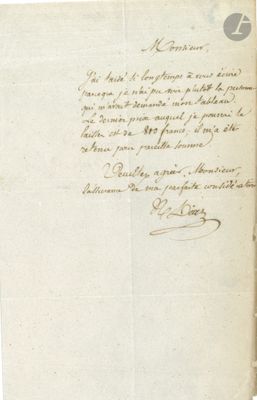 Monsieur,
J'ai tardé si longtemps à vous écrire
parceque je n'ai pu voir plutôt la personne
qui m'avait demandé mon tableau.
le dernier prix auquel je pourrai le
laisser est de 800 francs. il m'a été
retenu pour pareille somme.
Veuillez agréer, Monsieur,
l'assurance de ma parfaite considération